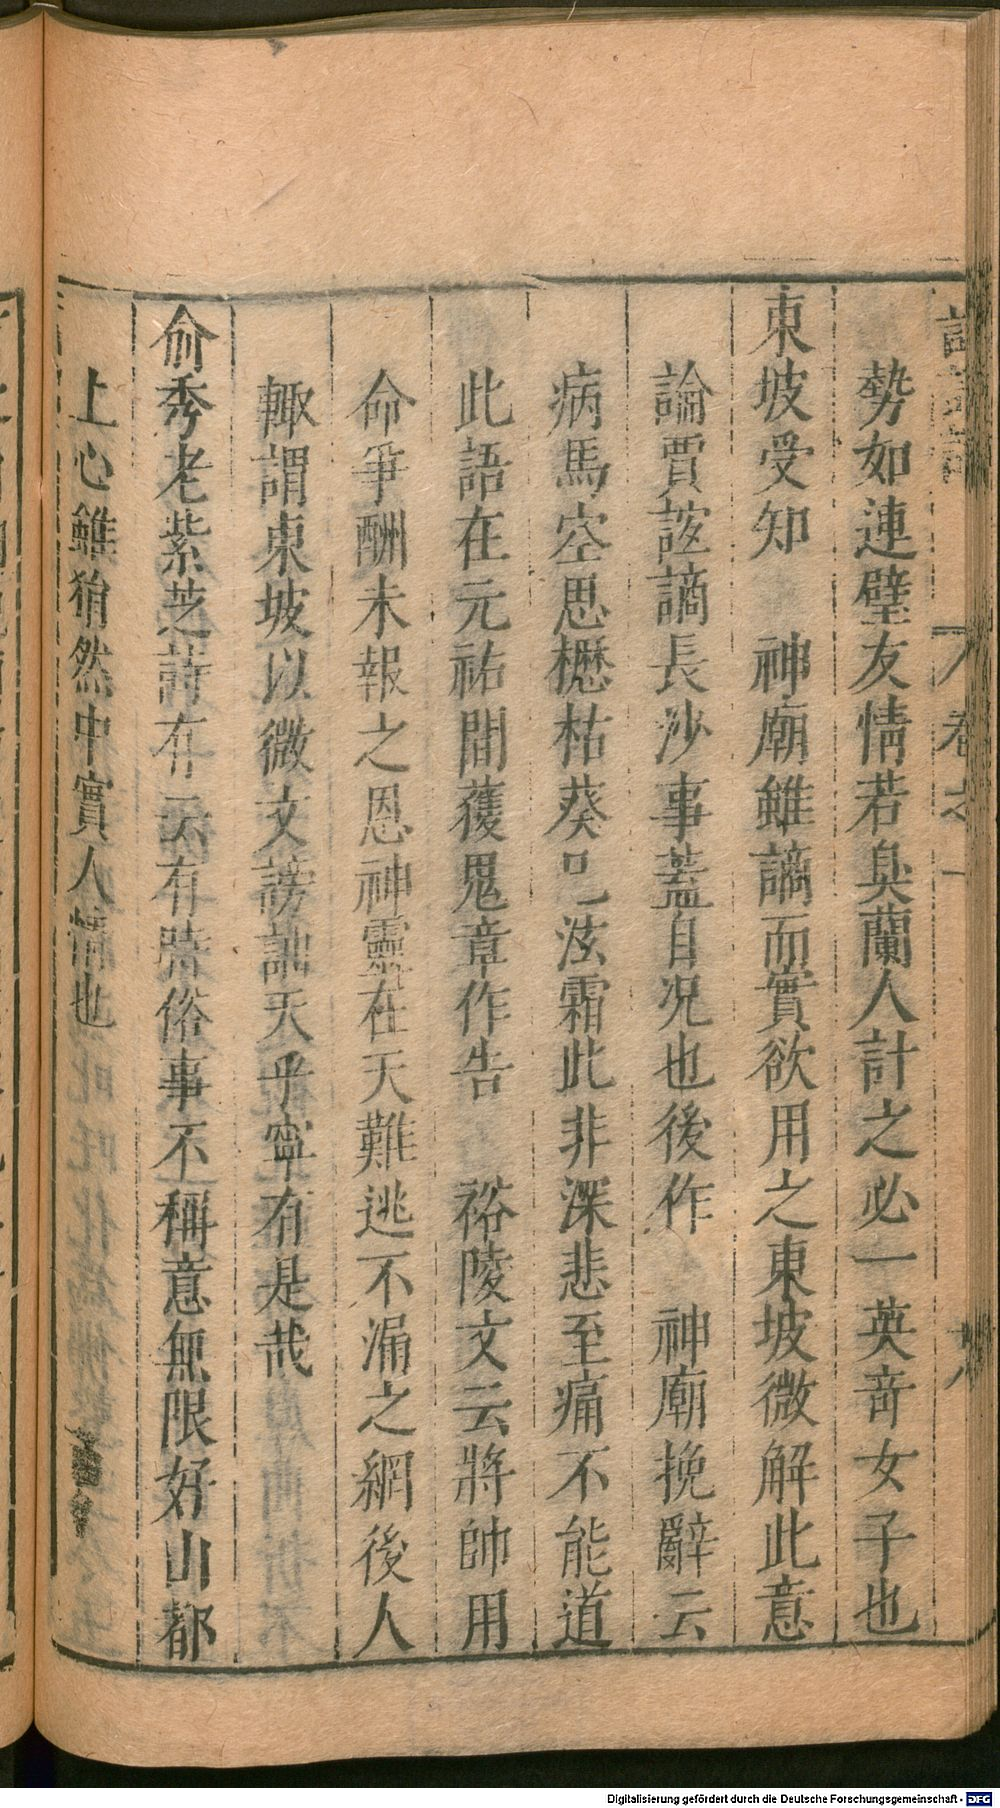 卷之一
十八
勢如連璧友情若臭蘭人計之必一英奇女子也
東坡受知 神廟雖謫而實欲用之東坡微解此意
論賈誼謫長沙事蓋自况也後作 神廟挽辭云
病馬空思櫪枯葵已泫霜此非深悲至痛不能道
此語在元祐間獲鬼章作告 裕陵文云將帥用
命爭酬未報之恩神靈在天難逃不漏之網後人
輙謂東坡以微文謗訕天乎寧有是哉
俞秀老紫芝詩有云有時俗事不稱意無限好山都
上心雖猶然中實人情也
Digitalisierung gefördert durch die Deutsche Forschungsgemeinschaft - DFG